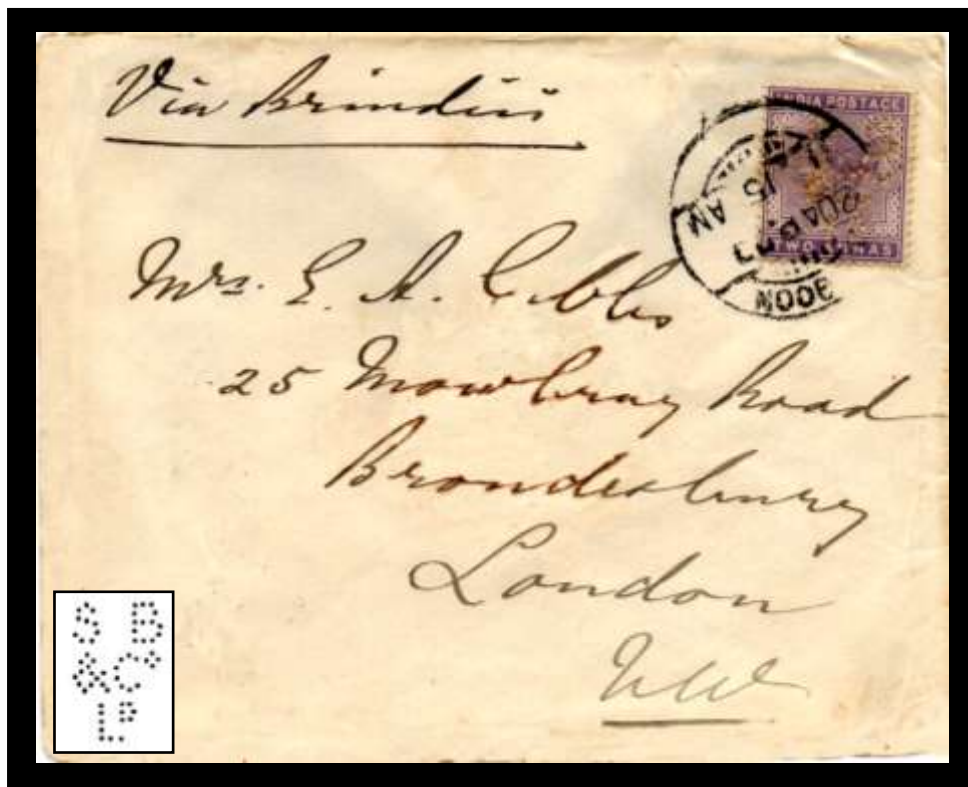 Via Brindisi
INDIA POSTAGE
TWO ANNAS
15 AM
Mrs. E. A. Gibbs
25 Mowbray Road
Brondesbury
London
NW
S B
&Co
LD